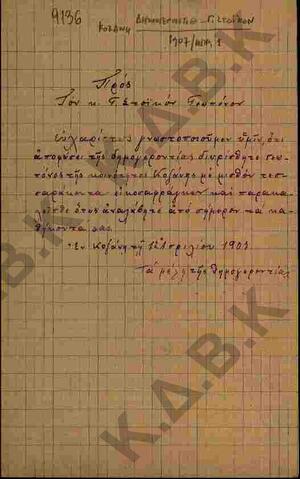 9136
ΚΟΖΑΝΗ ΔΗΜΟΓΕΡΟΝΤΙΑ - Γ. ΣΤΟΪΚΟΝ
1907/ΑΠΡ. 1
Πρὸς
Τὸν κ. Γ. Στοϊκὸν Γεωπόνον
Εὐχαρίστως γνωστοποιοῦμεν ὑμῖν, ὅτι
ἀποφάσει τῆς δημογεροντίας διωρίσθητε
τῆς κοινότητος Κοζάνης μὲ μισθὸν τεσ-
σαράκοντα εἰκοσαφράγκων καὶ παρακα-
λεῖσθε ὅπως ἀναλάβητε ἀπὸ σήμερον τὰ κα-
θήκοντά σας.
Ἐν Κοζάνῃ τῇ 1 Ἀπριλίου 1907
Τὰ μέλη τῆς δημογεροντίας
Κ.Δ.Β.Κ